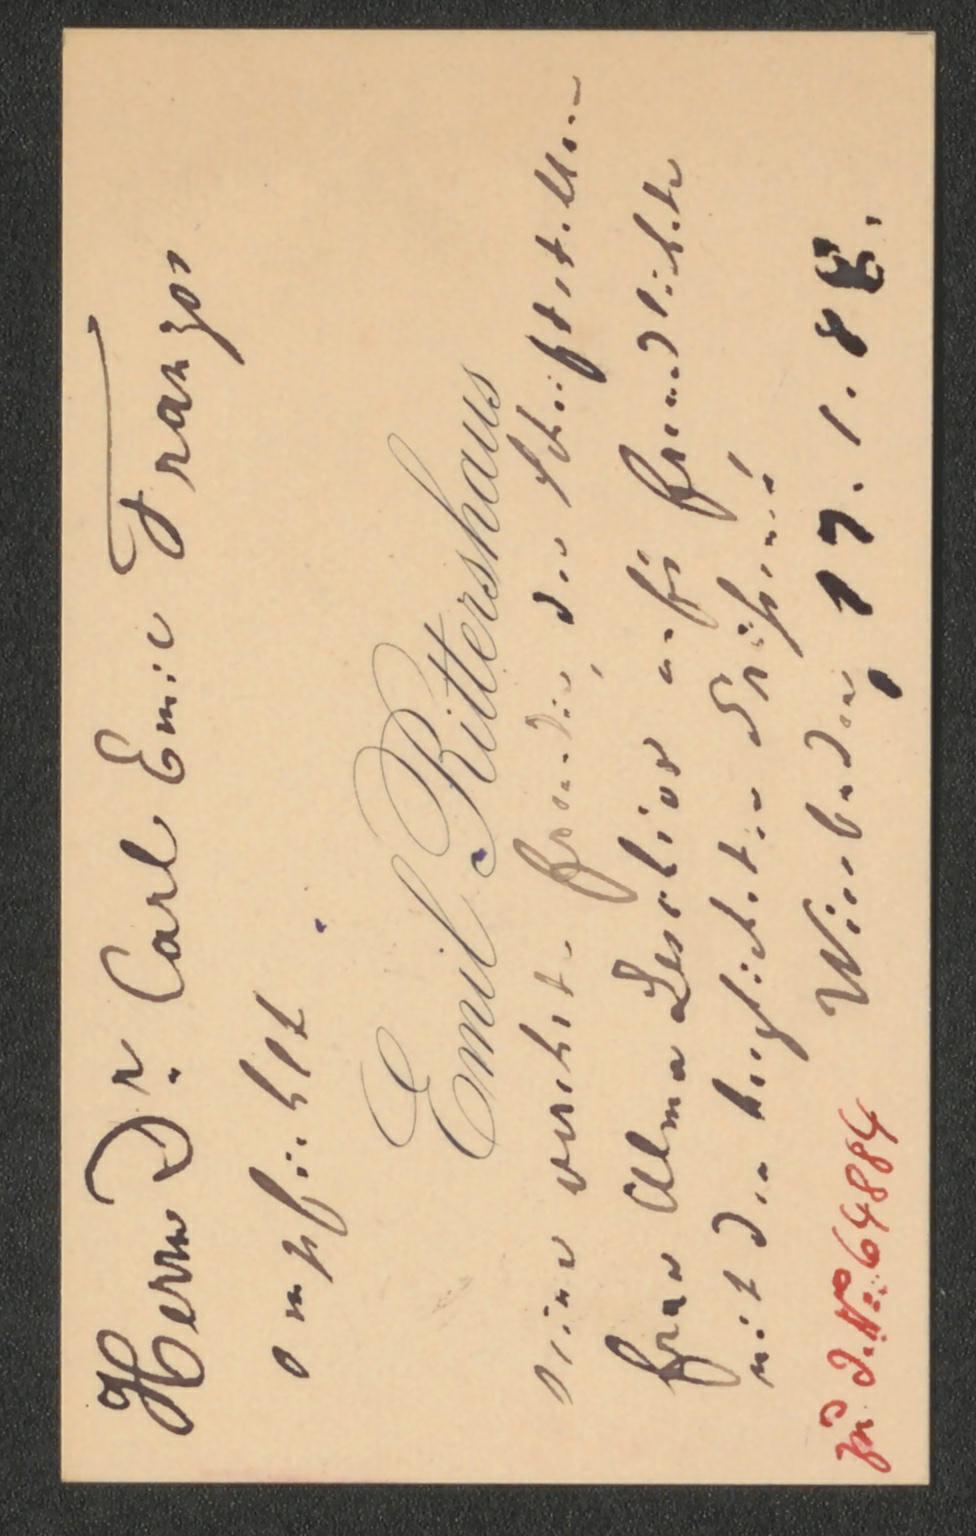 Herrn Dr. Carl Emil Franzos
empfiehlt
Emil Rittershaus
seine verehrte Freundin, die Schriftstellerin
Frau Alma Leschivo aufs freundlichste
mit den herzlichsten Grüßen!
Wiesbaden, 17. 1. 88.
Zu J. N. 64884